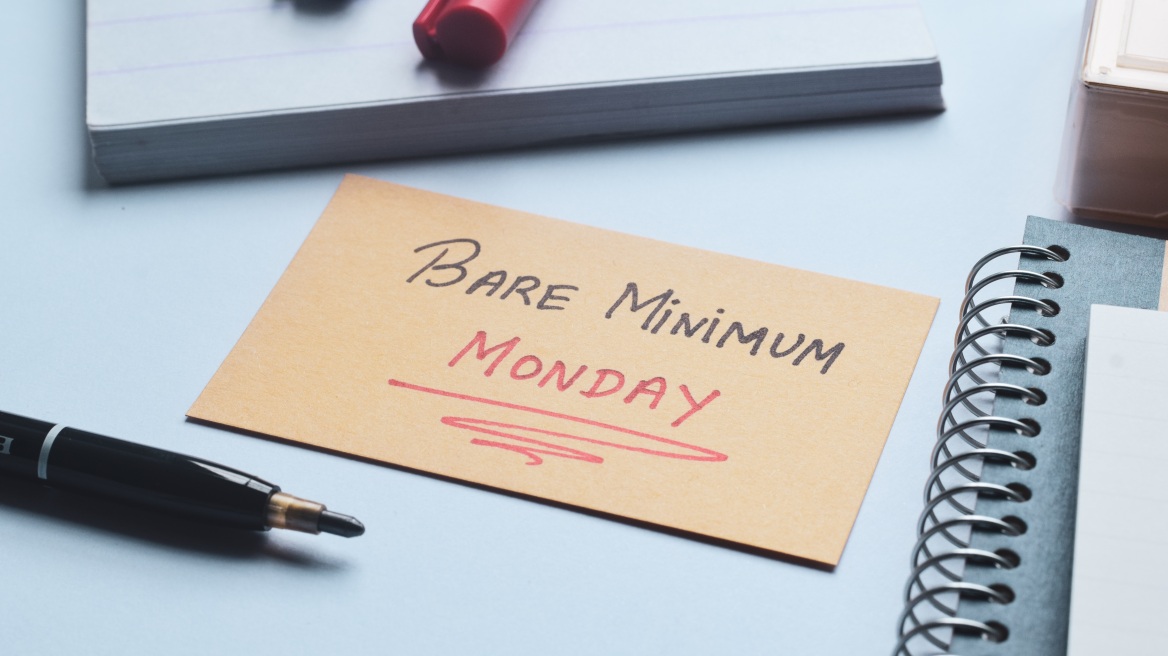 Bare Minimum
Monday